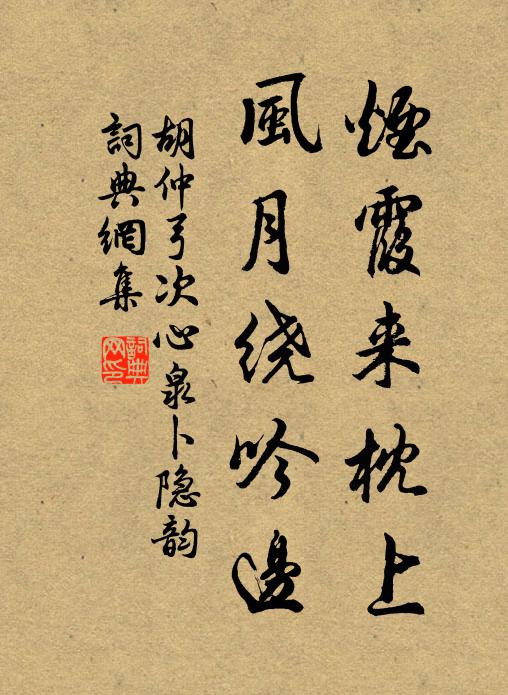 煙霞来枕上
風月绕吟邊
胡仲弓次心泉卜隐韵
詞典網集
詞典网印